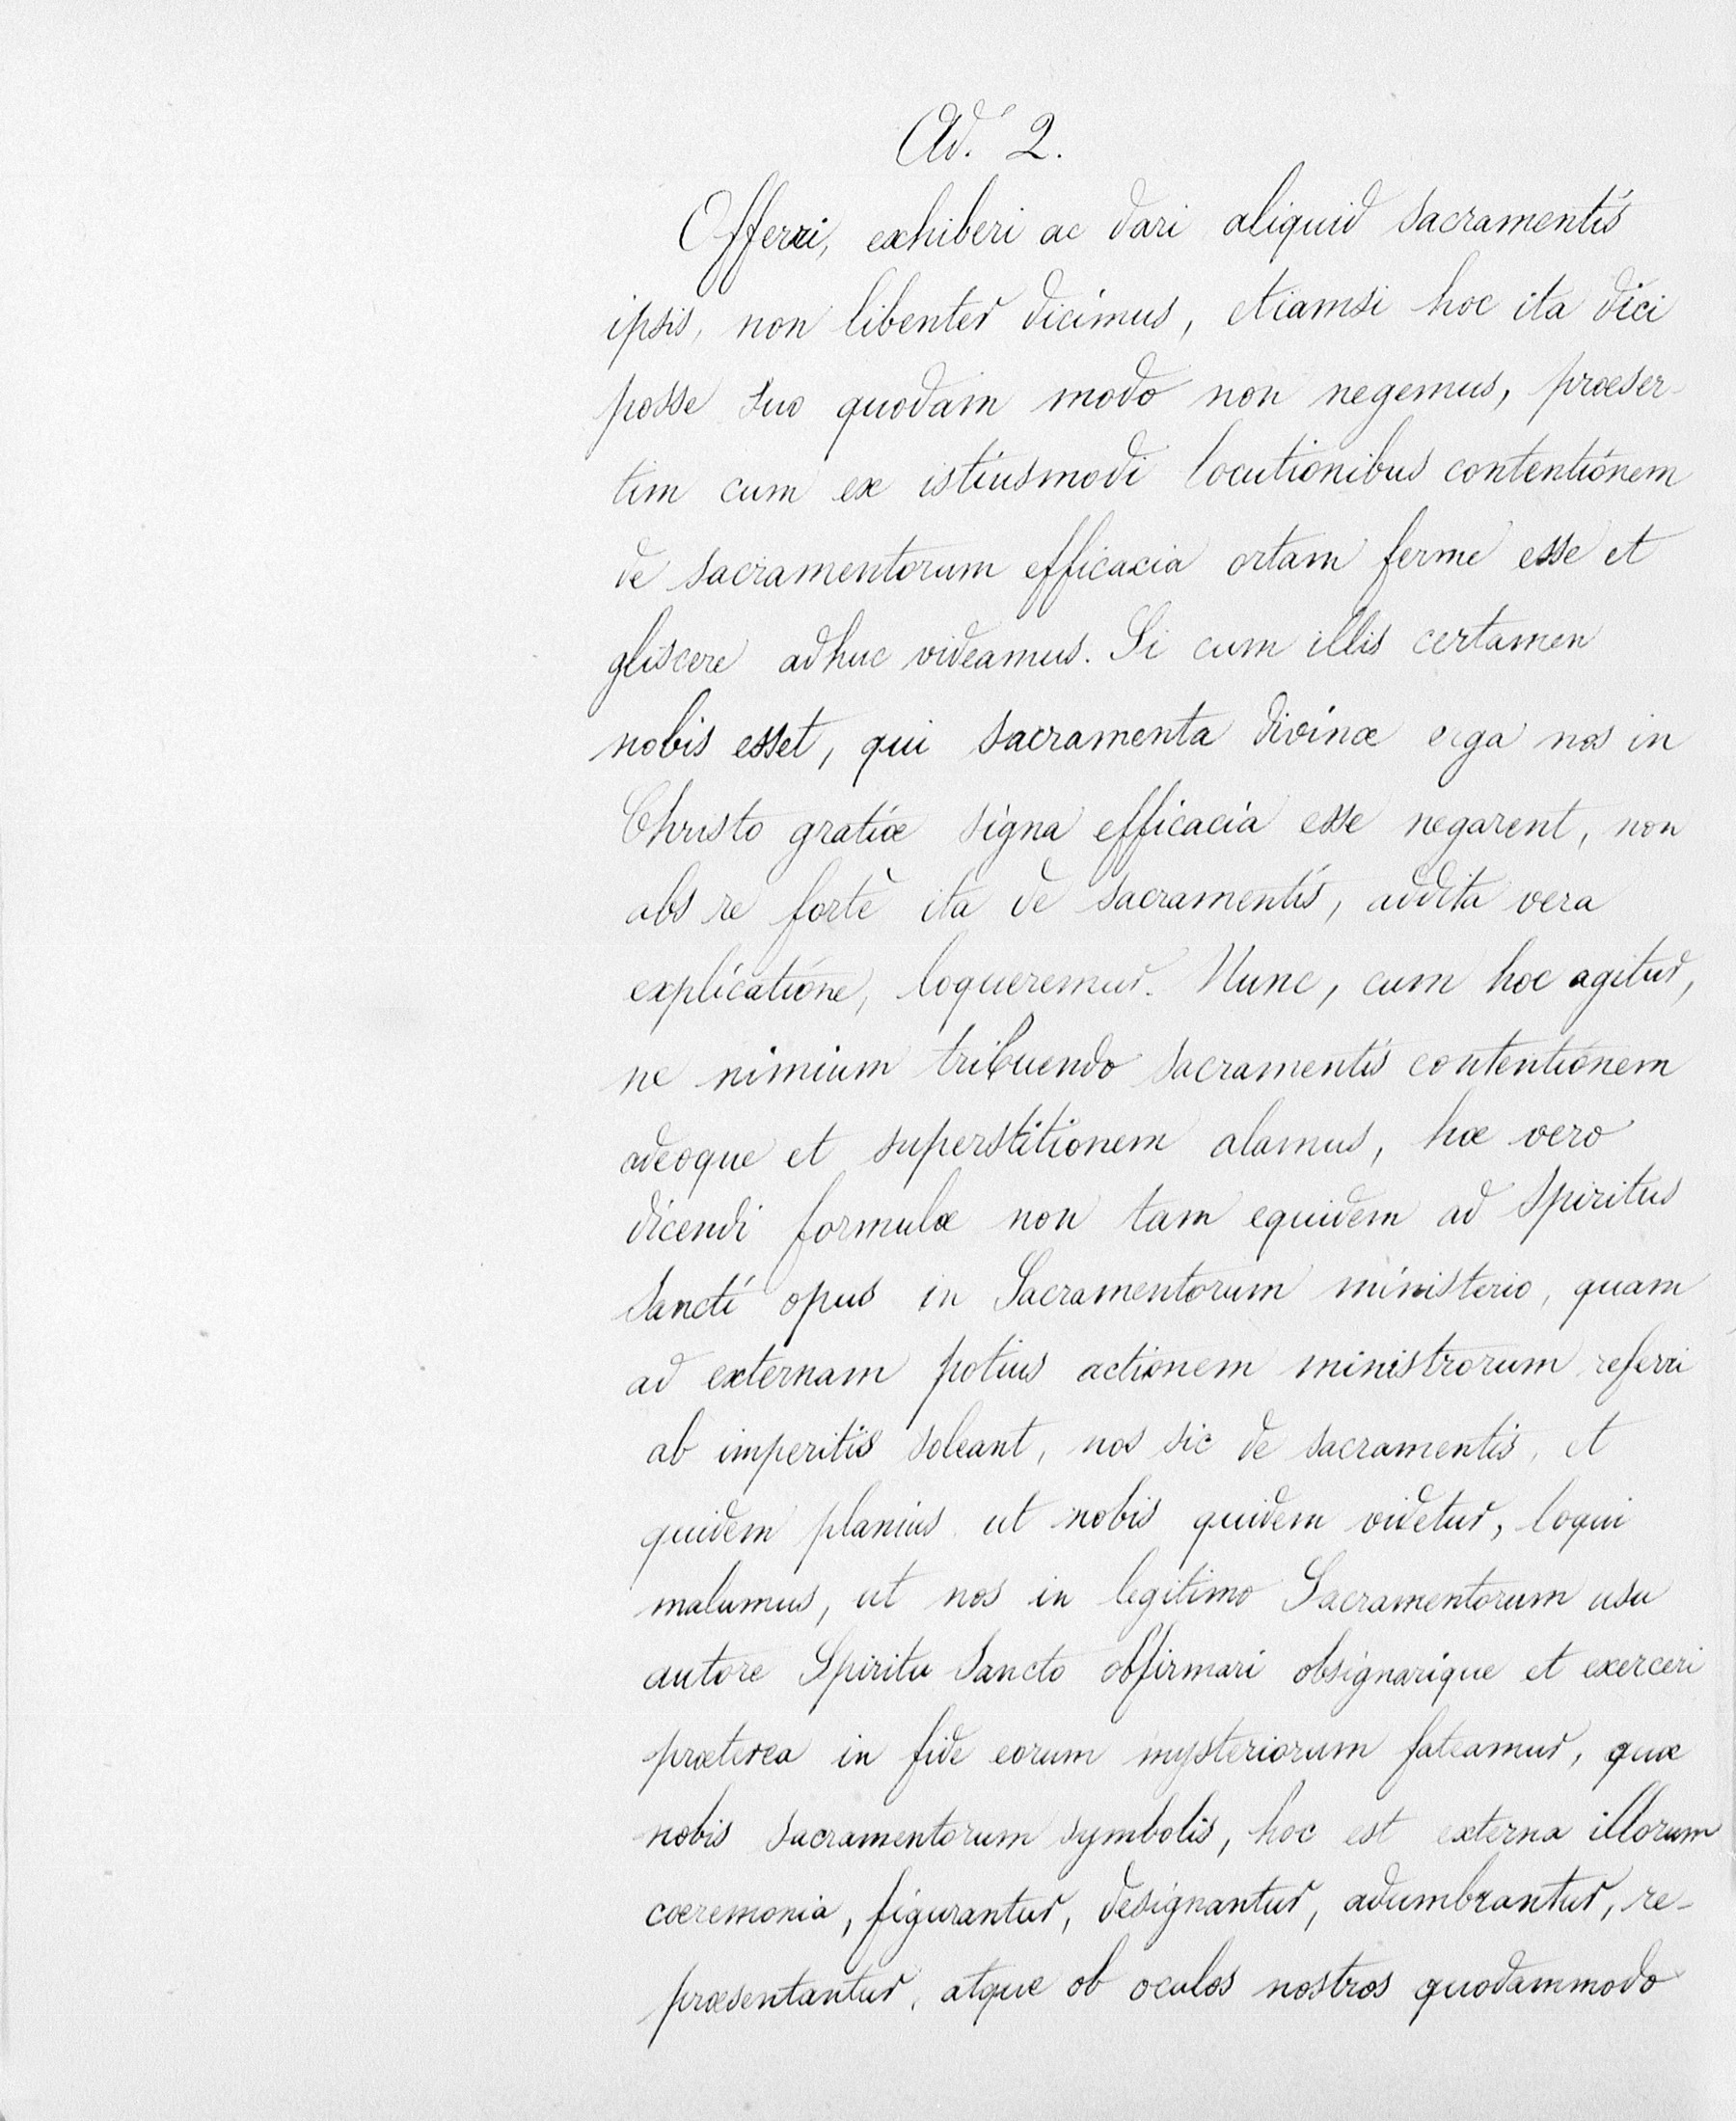 Ad. 2.
Offerri, exhiberi ac dari aliquid sacramentis
ipsis, non libenter dicimus, etiamsi hoc ita dici
posse suo quodam modo non negemus, præser-
tim cum ex istiusmodi locutionibus contentionem
de sacramentorum efficacia ortam ferme esse et
gliscere adhuc videamus. Si cum illis certamen
nobis esset, qui sacramenta divinæ erga nos in
Christo gratiæ signa efficacia esse negarent, non
abs re fortè ita de sacramentis, addita vera
explicatione, loqueremur. Nunc, cum hoc agitur,
ne nimium tribuendo sacramentis contentionem
adeoque et superstitionem alamus, hæ vero
dicendi formulæ non tam equidem ad Spiritus
Sancti opus in Sacramentorum ministerio, quam
ad externam potius actionem ministrorum referri
ab imperitis soleant, nos sic de sacramentis, et
quidem planius ut nobis quidem videtur, loqui
malumus, ut nos in legitimo Sacramentorum usu
autore Spiritu Sancto obfirmari obsignarique et exerceri
præterea in fide eorum mysteriorum fateamur, quæ
nobis sacramentorum symbolis, hoc est externa illorum
cœremonia, figurantur, designantur, adumbrantur, re-
præsentantur, atque ob oculos nostros quodammodo